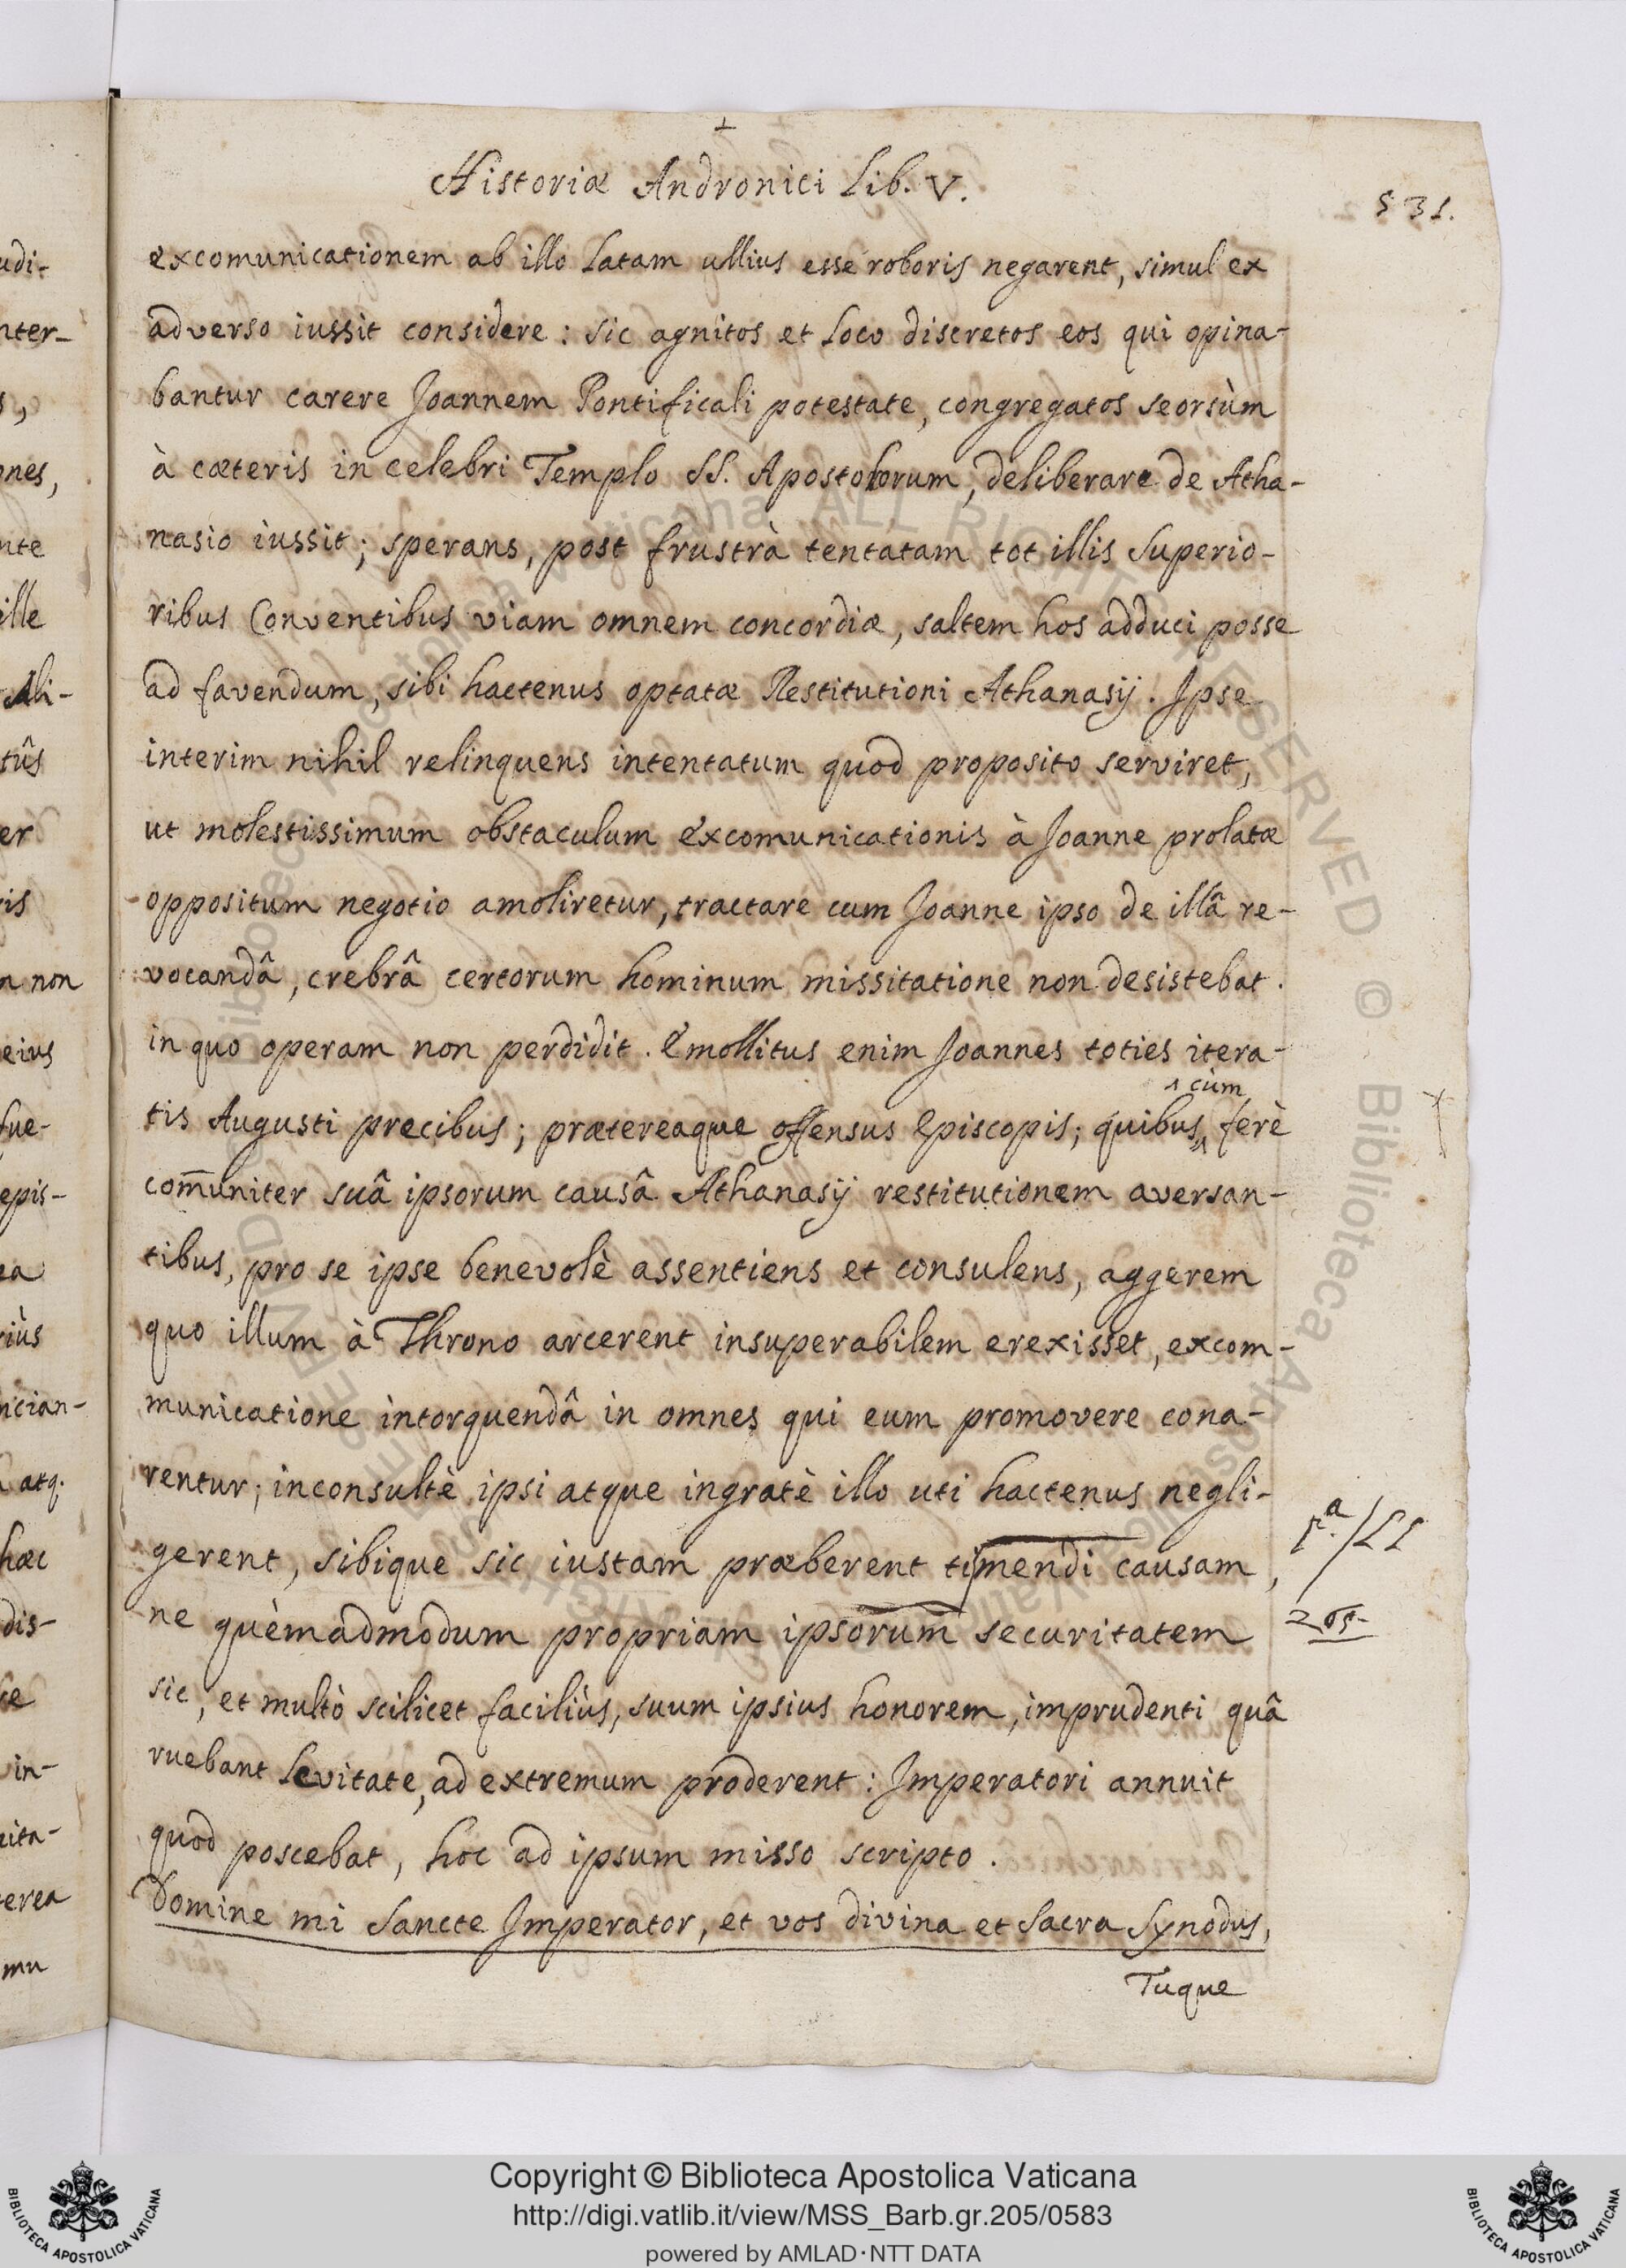 Historiæ Andronici Lib. V.
531.
excomunicationem ab illo latam ullius esse roboris negarent, simul ex
adverso iussit considere: sic agnitos et loco discretos eos qui opina-
bantur carere Joannem Pontificali potestate, congregatos seorsùm
à cæteris in celebri Templo SS. Apostolorum, deliberare de Atha-
nasio iussit; sperans, post frustrà tentatam tot illis Superio-
ribus Conventibus viam omnem concordiæ, saltem hos adduci posse
ad favendum, sibi hactenus optatæ Restitutioni Athanasij. Ipse
interim nihil relinquens intentatum quod proposito serviret,
ut molestissimum obstaculum excomunicationis à Joanne prolatæ
oppositum negotio amoliretur, tractare cum Joanne ipso de illâ re-
vocandâ, crebrâ certorum hominum missitatione non desistebat.
in quo operam non perdidit. Emollitus enim Joannes toties itera-
cùm
tis Augusti precibus; prætereaque offensus Episcopis; quibus ferè
com̄uniter suâ ipsorum causâ Athanasij restitutionem aversan-
tibus, pro se ipse benevolè assentiens et consulens, aggerem
quo illum à Throno arcerent insuperabilem erexisset, excom-
municatione intorquendâ in omnes qui eum promovere cona-
rentur; inconsultè ipsi atque ingratè illo uti hactenus negli-
gerent, sibique sic iustam præberent timendi causam,
ne quèmadmodum propriam ipsorum securitatem
sic, et multò scilicet faciliùs, suum ipsius honorem, imprudenti quâ
ruebant levitate, ad extremum proderent: Imperatori annuit
quod poscebat, hoc ad ipsum misso scripto.
Domine mi Sancte Imperator, et vos divina et Sacra Synodus,
Tuque
udi-
nter-
s,
ones,
nte
ille
Ali-
tûs
er
ris
n non
eius
fue-
epis-
ea
riùs
ncian-
atq.
hæc
dis-
in-
erea
mu
Copyright © Biblioteca Apostolica Vaticana
http://digi.vatlib.it/view/MSS_Barb.gr.205/0583
powered by AMLAD·NTT DATA
BIBLIOTECA APOSTOLICA VATICANA
BIBLIOTECA APOSTOLICA VATICANA